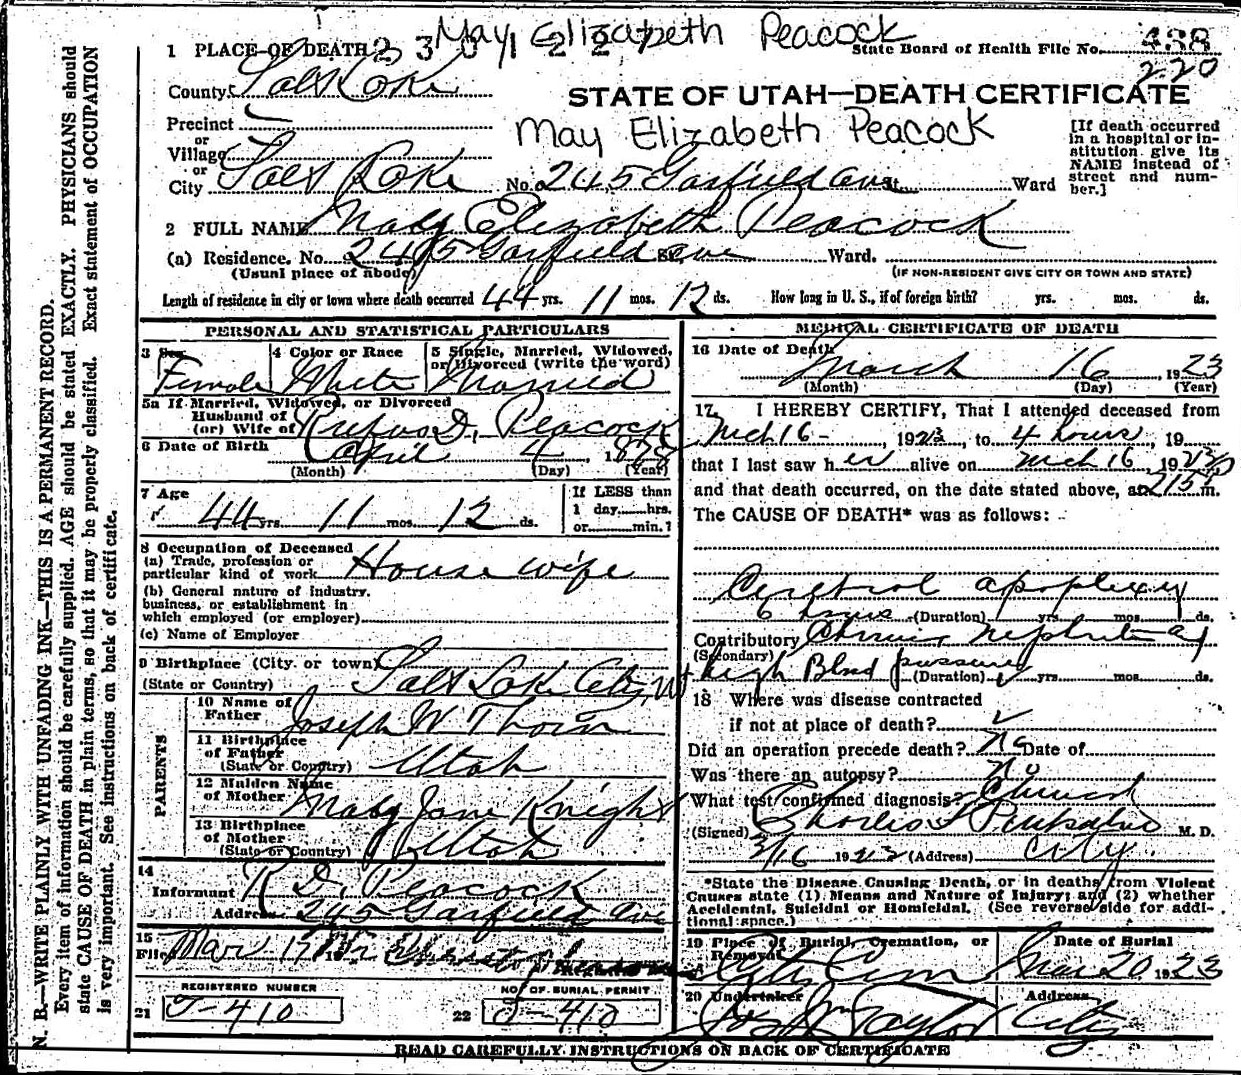 May Elizabeth Peacock
1 PLACE OF DEATH 2 3 0 1 2 2 State Board of Health File No. 438
220
County Salt Lake
STATE OF UTAH—DEATH CERTIFICATE
Precinct
May Elizabeth Peacock
or
Village
or
City Salt Lake No. 245 Garfield ave St. Ward
[If death occurred
in a hospital or in-
stitution give its
NAME instead of
street and num-
ber.]
2 FULL NAME May Elizabeth Peacock
(a) Residence. No. 245 Garfield St. ave Ward.
(Usual place of abode)
(IF NON-RESIDENT GIVE CITY OR TOWN AND STATE)
Length of residence in city or town where death occurred 44 yrs. 11 mos. 12 ds. How long in U. S., if of foreign birth? yrs. mos. ds.
PERSONAL AND STATISTICAL PARTICULARS
3 Sex 4 Color or Race 5 Single, Married, Widowed,
or Divorced (write the word)
Female White Married
5a If Married, Widowed, or Divorced
Husband of
(or) Wife of Rufus D. Peacock
6 Date of Birth April 4, 1878
(Month) (Day) (Year)
7 Age
44 yrs. 11 mos. 12 ds.
If LESS than
1 day, hrs.
or min.?
8 Occupation of Deceased
(a) Trade, profession or
particular kind of work House wife
(b) General nature of industry,
business, or establishment in
which employed (or employer)
(c) Name of Employer
9 Birthplace (City or town) Salt Lake City, Ut
(State or Country)
PARENTS
10 Name of
Father Joseph W Thorn
11 Birthplace
of Father
(State or Country) Utah
12 Maiden Name
of Mother Mary Jane Knight
13 Birthplace
of Mother
(State or Country) Utah
14
Informant R D. Peacock
Address 245 Garfield Ave
15
Filed Mar 17
REGISTERED NUMBER NO. OF BURIAL PERMIT
21 J-410 22 J-410
MEDICAL CERTIFICATE OF DEATH
16 Date of Death March 16, 1923
(Month) (Day) (Year)
17 I HEREBY CERTIFY, That I attended deceased from
Mch 16 -, 1923, to 4 hours, 19
that I last saw her alive on Mch 16, 1923
and that death occurred, on the date stated above, at 215 P m.
The CAUSE OF DEATH* was as follows:
Cerebral apoplexy
6 hours (Duration) yrs. mos. ds.
Contributory Chronic nephritis
(Secondary)
high Blood pressure (Duration) yrs. mos. ds.
18 Where was disease contracted
if not at place of death?
Did an operation precede death? No Date of
Was there an autopsy? No
What test confirmed diagnosis? Clinical
(Signed) Charles M. D.
3/16 1923 (Address) City.
*State the Disease Causing Death, or in deaths from Violent
Causes state (1) Means and Nature of Injury; and (2) whether
Accidental, Suicidal or Homicidal. (See reverse side for addi-
tional space.)
19 Place of Burial, Cremation, or
Removal City Cem
Date of Burial
Mar 20 1923
20 Undertaker Address
Jos Wm Taylor City
READ CAREFULLY INSTRUCTIONS ON BACK OF CERTIFICATE
N. B.—WRITE PLAINLY WITH UNFADING INK—THIS IS A PERMANENT RECORD.
Every item of information should be carefully supplied. AGE should be stated EXACTLY. PHYSICIANS should
state CAUSE OF DEATH in plain terms, so that it may be properly classified. Exact statement of OCCUPATION
is very important. See instructions on back of certificate.